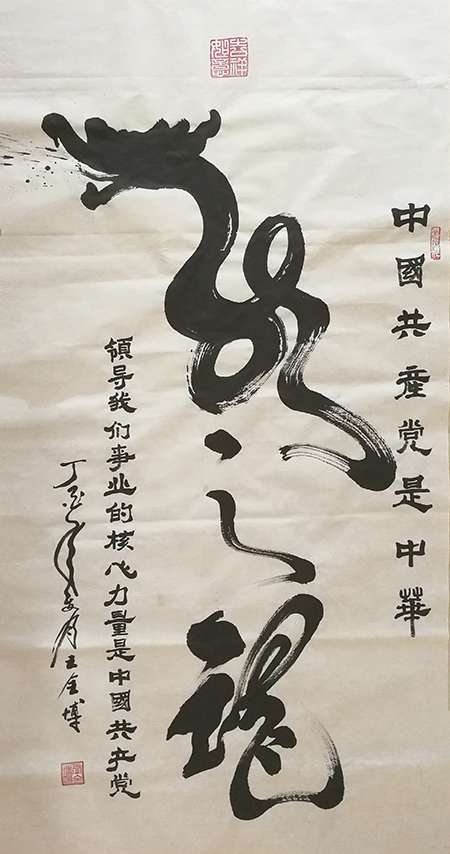 吉祥如意
中國共產党是中華
龍之魂
領导我们事业的核心力量是中國共产党
丁酉年